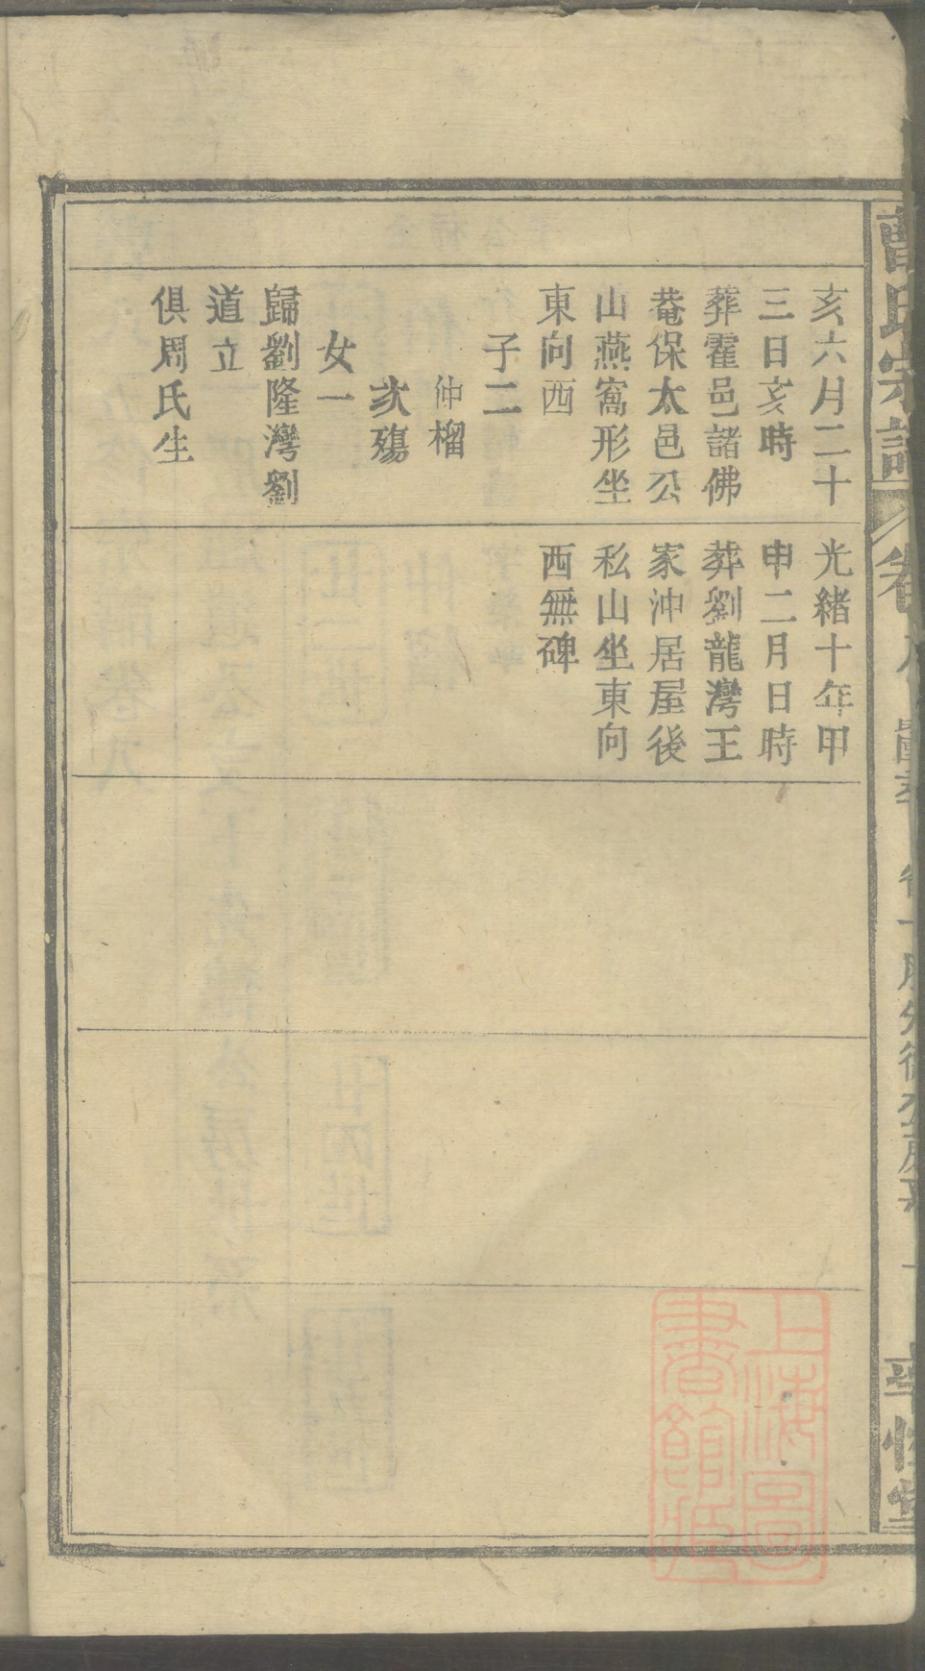 亥六月二十
三日亥時
葬霍邑諸佛
菴保太邑公
山燕窩形坐
東向西
子二
仲榴
次殤
女一
歸劉隆灣劉
道立
俱周氏生
光緒十年甲
申二月日時
葬劉龍灣王
家沖居屋後
私山坐東向
西無碑
上海圖
書館藏